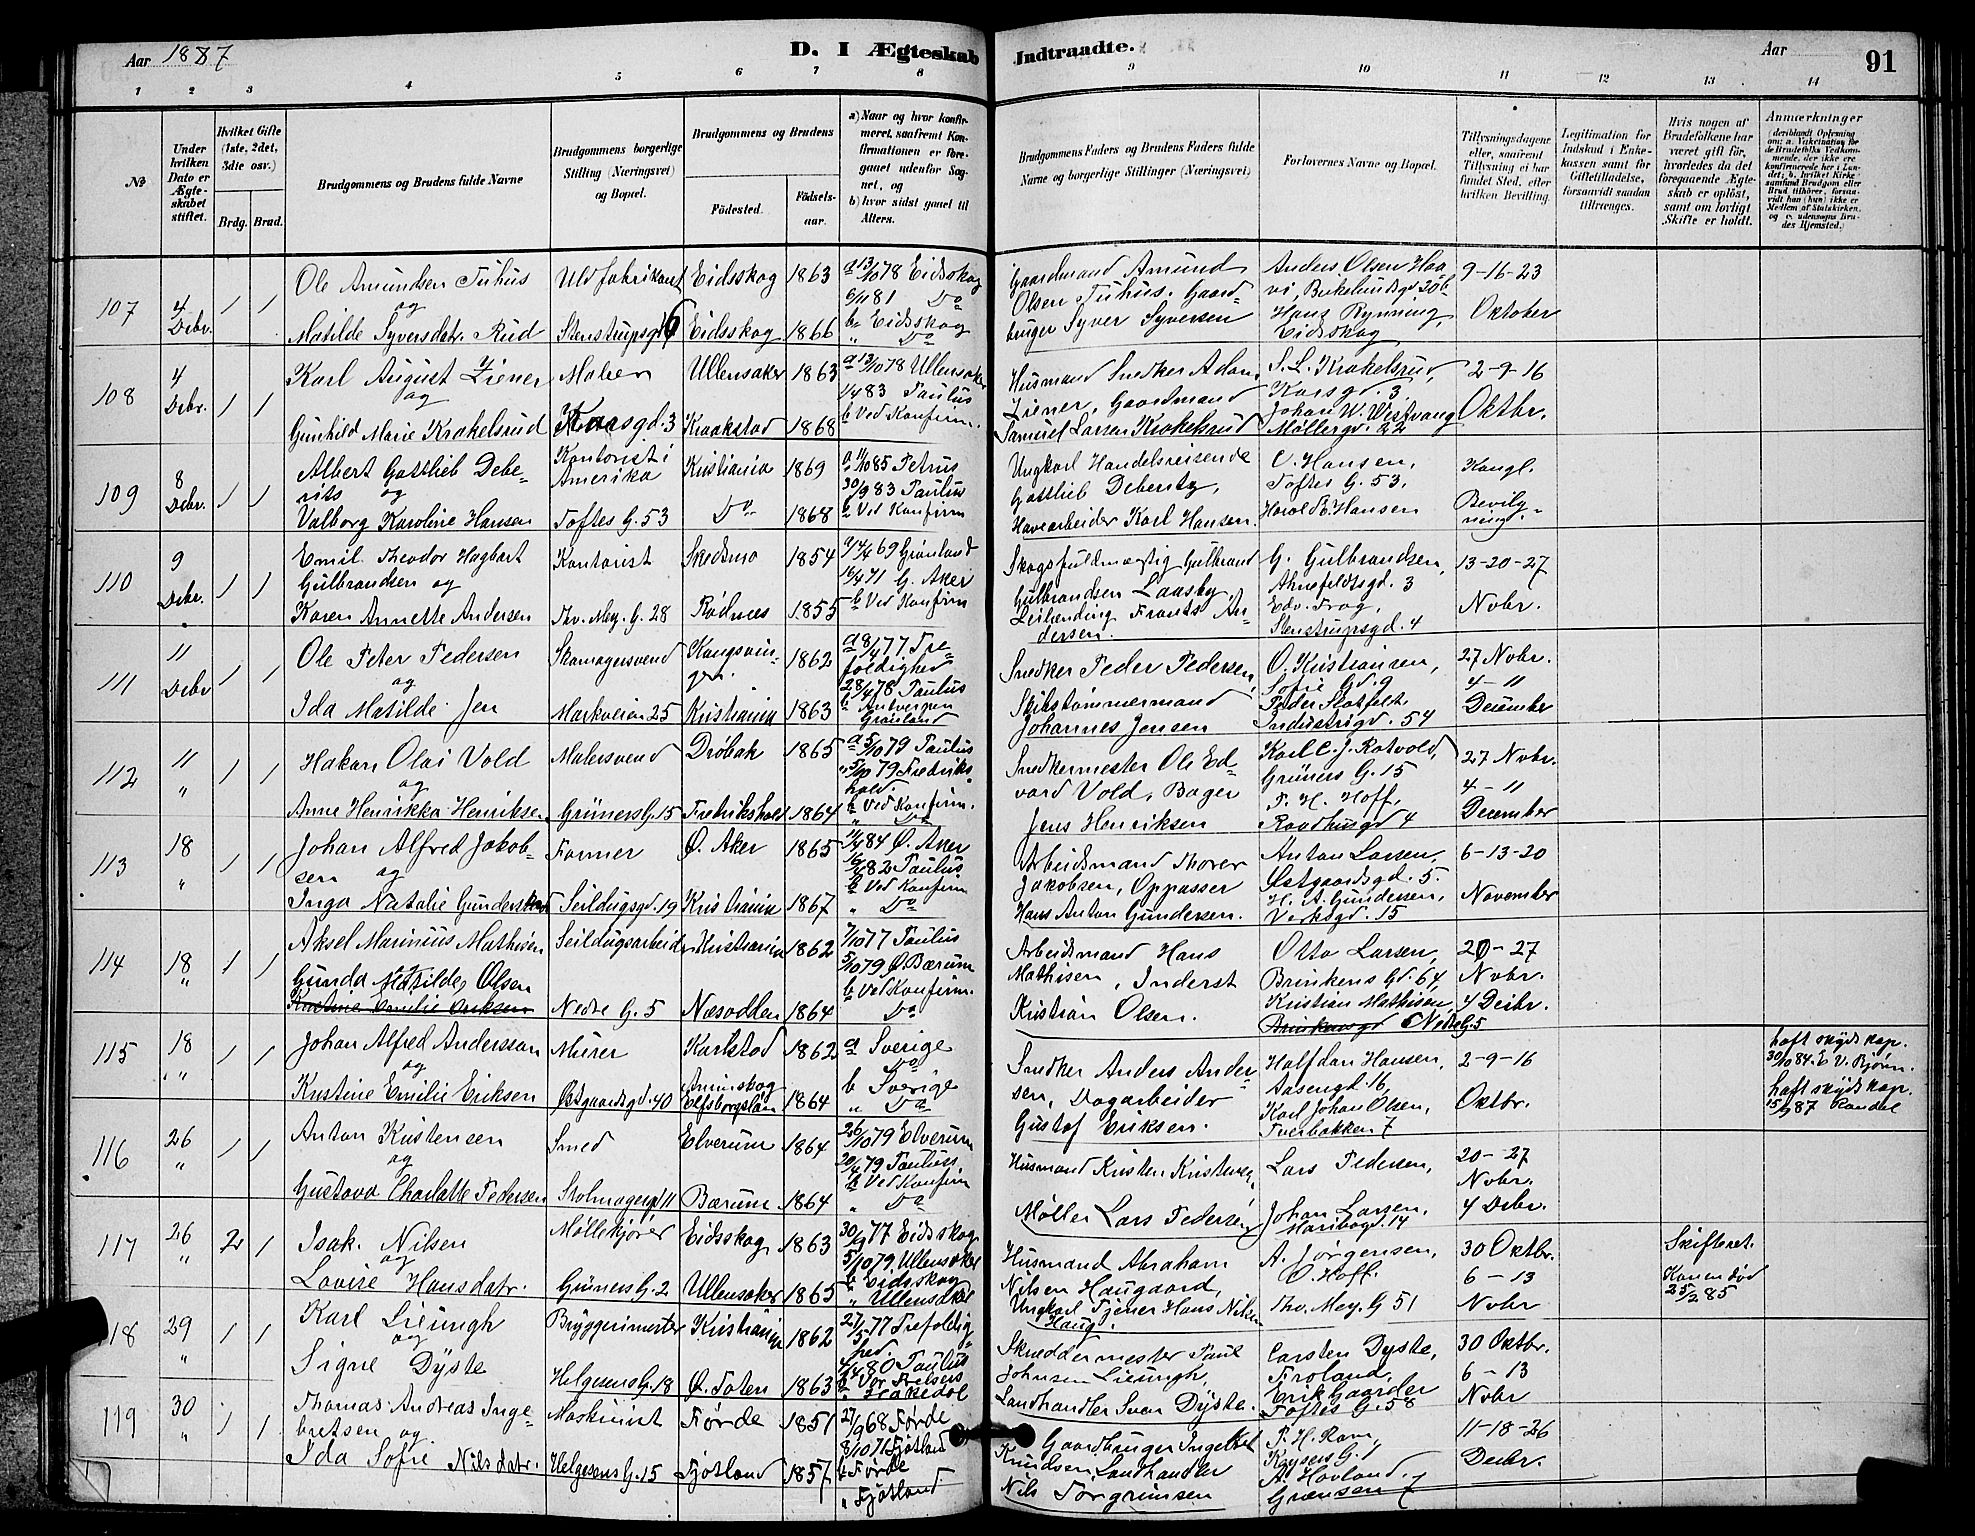 Aar 1887
D. I Ægteskab
Indtraadte.
Aar
91
1 2 3 4 5 6 7 8 9 10 11 12 13 14
No
Under hvilken Dato er Ægteskabet stiftet.
Hvilket Gifte (1ste, 2det, 3die osv.)
Brdg. Brud.
Brudgommens og Brudens fulde Navne
Brudgommens borgerlige Stilling (Næringsvei) og Bopæl.
Brudgommens og Brudens
Födested.
Födselsaar.
a) Naar og hvor konfirmeret, saafremt Konfirmationen er foregaaet udenfor Sognet, og
b) hvor sidst gaaet til Alters.
Brudgommens Faders og Brudens Faders fulde Navne og borgerlige Stillinger (Næringsvei)
Forlovernes Navne og Bopæl.
Tillysningsdagene eller, saafremt Tillysning ei har fundet Sted, efter hvilken Bevilling.
Legitimation for Indskud i Enkekassen samt for Giftetilladelse, forsaavidt saadan tiltrænges.
Hvis nogen af Brudefolkene har været gift för, hvorledes da det foregaaende Ægteskab er oplöst, samt om lovligt Skifte er holdt.
Anmærkninger
107 4 Debr. 1 1
Ole Amundsen Tuhus
og
Matilde Syversdatr. Rud
Uldfabrikant
Stenstrupsgd 6
Eidsskog 1863
Eidsskog 1866
a 13/10 78 Eidsskog
6/11 81 Do
b. Eidsskog
" Do
Gaardmand Amund
Olsen Tuhus. Gaard-
bruger Syver Syversen
Anders Olsen Haa-
vi, Birkelundsgd 30b
Hans Rynning,
Eidsskog
9-16-23
Oktober
108 4 Debr. 1 1
Karl August Ziener
og
Gunhild Marie Krakelsrud
Maler
Korsgd. 3
Ullensaker 1863
Kraakstad 1868
a 13/10 78 Ullensaker
1/4 83 Paulus
b Ved Konfirm.
Husmand Snedker Adam
Ziener, Gaardmand
Samuel Larsen Krakelsrud
S. L. Krakelsrud,
Korsgd. 3
Johan W. Westvang
Møllergd. 22
2-9-16
Oktbr.
109 8 Debr. 1 1
Albert Gottlieb Debe-
rits og
Valborg Karoline Hansen
Kontorist i
Amerika
Toftes G. 53
Kristiania 1869
Do 1868
a 11/10 85 Petrus
30/9 83 Paulus
b Ved Konfirm
Ungkarl Handelsreisende
Gottlieb Deberitz,
Havearbeider Karl Hansen.
C. Hansen,
Toftes G. 53,
Harald B. Hansen
Kongl.
Bevilg-
ning.
110 9 Debr. 1 1
Emil Theodor Hagbart
Gulbrandsen og
Karen Annette Andersen
Kontorist
Thv. Mey. G. 28
Skedsmo 1854
Rødnæs 1855
a 14/4 69 Grønland
16/4 71 G. Aker
b Ved Konfirm
Skogsfuldmægtig Gulbrand
Gulbrandsen Laasby
Leilending Frants An-
dersen.
G. Gulbrandsen,
Ahnefeldtsgd. 3
Edv. Frog,
Stenstrupsgd. 4
13-20-27
Nobr.
111 11 Debr 1 1
Ole Peter Pedersen
og
Ida Matilde Jen
Skomagersvend
Markveien 25
Kongsvin-
ger. 1862
Kristiania 1863
a 8/4 77 Tre-
foldighed
28/4 78 Paulus
b Antverpen
Grønland
Snedker Peder Pedersen,
Skibstømmermand
Johannes Jensen
O. Kristiansen,
Sofie Gd. 9
Peder Slotfelt
Industrigd. 54
27 Nobr.
4-11
Deember
112 11 " 1 1
Hakon Olai Vold
og
Anne Henrikka Henriksen
Malersvend
Grüners G. 15
Drøbak 1865
Fredrikshald 1864
a 5/10 79 Paulus
" 5/10 79 Fredriks-
hald.
b Ved Konfirm.
" Do
Snedkermester Ole Ed-
vard Vold, Bager
Jens Henriksen
Karl C. J. Rotvold,
Grüners G. 15
P. H. Hoff,
Raadhusgd 4
27 Nobr.
4-11
Deember
113 18 " 1 1
Johan Alfred Jakob-
sen og
Inga Natalie Gundersen
Former
Seildugsgd. 19
Ø. Aker 1865
Kristiania 1867
11/4 84 Ø. Aker
16/4 82 Paulus
b Ved Konfirm
" Do
Arbeidsmand Thorer
Jakobsen, Oppasser
Hans Anton Gundersen.
Anton Larsen,
Østgaardsgd. 5.
H. A. Gundersen,
Verksgd. 15
6-13-20
November
114 18 " 1 1
Aksel Marinius Mathisen
og
Gunda Matilde Olsen
Kristine Emilie Eriksen
Seildugsarbeider
Nedre G. 5
Kristiania 1862
Næsodden 1864
7/10 77 Paulus
5/10 79 Ø. Bærum
b Ved Konfirm.
Do
Arbeidsmand Hans
Mathisen, Inderst
Kristian Olsen.
Otto Larsen,
Brinkens Gd. 64,
Kristian Mathisen,
Brinkensgd Nedre G. 5
20-27
Nobr.
4 Debr.
115 18 " 1 1
Johan Alfred Andersson
og
Kristine Emilie Eriksen
Murer
Østgaardsgd. 40
Karlstad 1862
Aminskog
Elfsborgslän 1864
a Sverige
Do
b Sverige
" Do
Snedker Anders Ander-
sen, Dagarbeider
Gustof Eriksen.
Halfdan Hansen,
Aasengd. 16,
Karl Johan Olsen,
Tverbakken 7
2-9-16
Oktbr.
haft skyds kop.
30/10 84. E. V. Bjørn.
haft skyds kop.
15/9 87 Randal
116 26 " 1 1
Anton Kristensen
og
Gustava Charlotte Pedersen
Smed
Stolmagergd 11
Elverum 1864
Bærum 1864
26/10 79 Elverum
20/4 79 Paulus
b Ved Konfirm
" Do
Husmand Kristen Kristensen,
Møller Lars Pedersen
Lars Pedersen,
Johan Larsen,
Maribogd. 14
20-27
Nobr.
4 Debr.
117 26 " 2 1
Isak Nilsen
og
Lovise Hansdatr.
Møllekjører
Grüners G. 2
Eidsskog 1863
Ullensaker 1865
30/9 77 Eidsskog
5/10 79 Ullensaker
b Eidsskog
" Ullensaker
Husmand Abraham
Nilsen Haugaard,
Ungkarl Tjener Hans Nilsen
Haug.
A. Jørgensen,
O. Hoff.
Thv. Mey. G 51
30 Oktbr.
6-13
Nobr
Skifteret.
Konen død
25/2 85
118 29 " 1 1
Karl Lieungh
og
Signe Dyste
Bryggerimester
Helgesens G. 18
Kristiania 1862
Ø. Toten 1863
27/5 77 Trefoldig-
hed.
4/4 80 Paulus
b Vor Frelsers
Skræddermester Paul
Johnsen Lieungh,
Landhandler Svan Dyste.
Carsten Dyste,
Froland,
Erik Gaarder
Toftes G. 58
30 Oktbr.
6-13
Nobr
119 30 " 1 1
Thomas Andreas Inge-
bretsen og
Ida Sofie Nilsdatr.
Maskinist
Helgesens G. 15
Førde 1851
Fjotland 1857
27/9 68 Førde
8/10 71 Fjotland
b Førde
" Fjotland.
Gaardbruger Ingebret
Knudsen, Landhandler
Nils Torgrimsen
P. H. Ram,
Keysers G. 1
A. Hovland,
Grænsen 7
11-18-26
Debr.